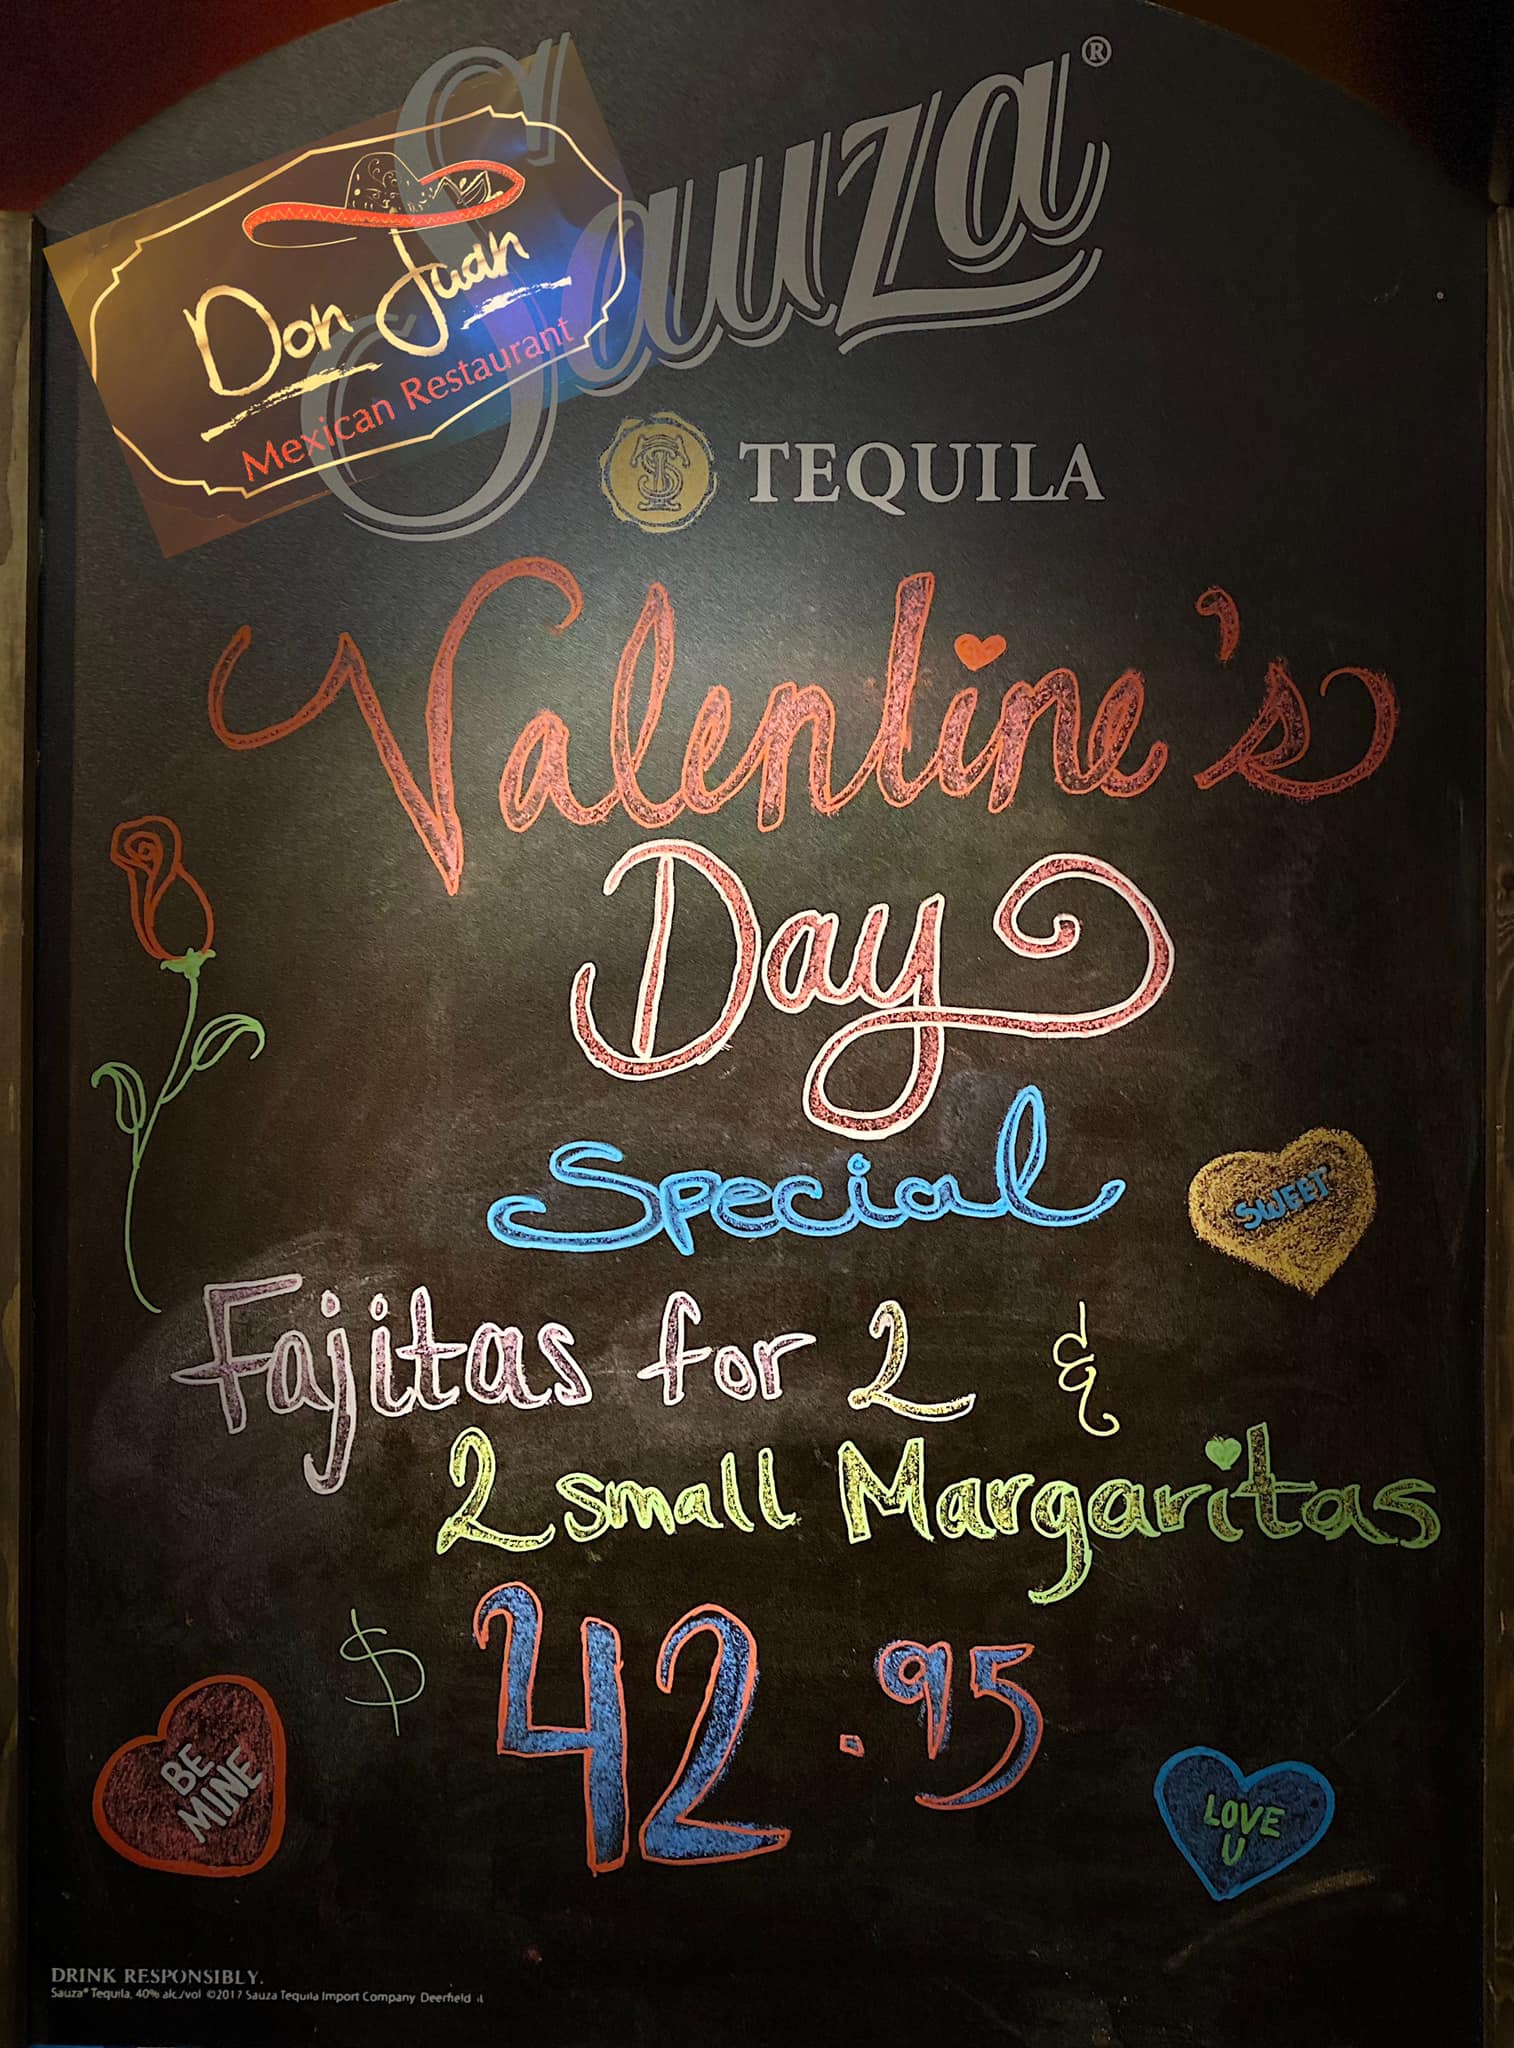 Sauza®
Don Juan
Mexican Restaurant
TEQUILA
Valentine's
Day
Special
SWEET
Fajitas for 2 &
2 small Margaritas
$ 42.95
BE
MINE
LOVE
U
DRINK RESPONSIBLY.
Sauza® Tequila, 40% alc./vol ©2017 Sauza Tequila Import Company Deerfield IL